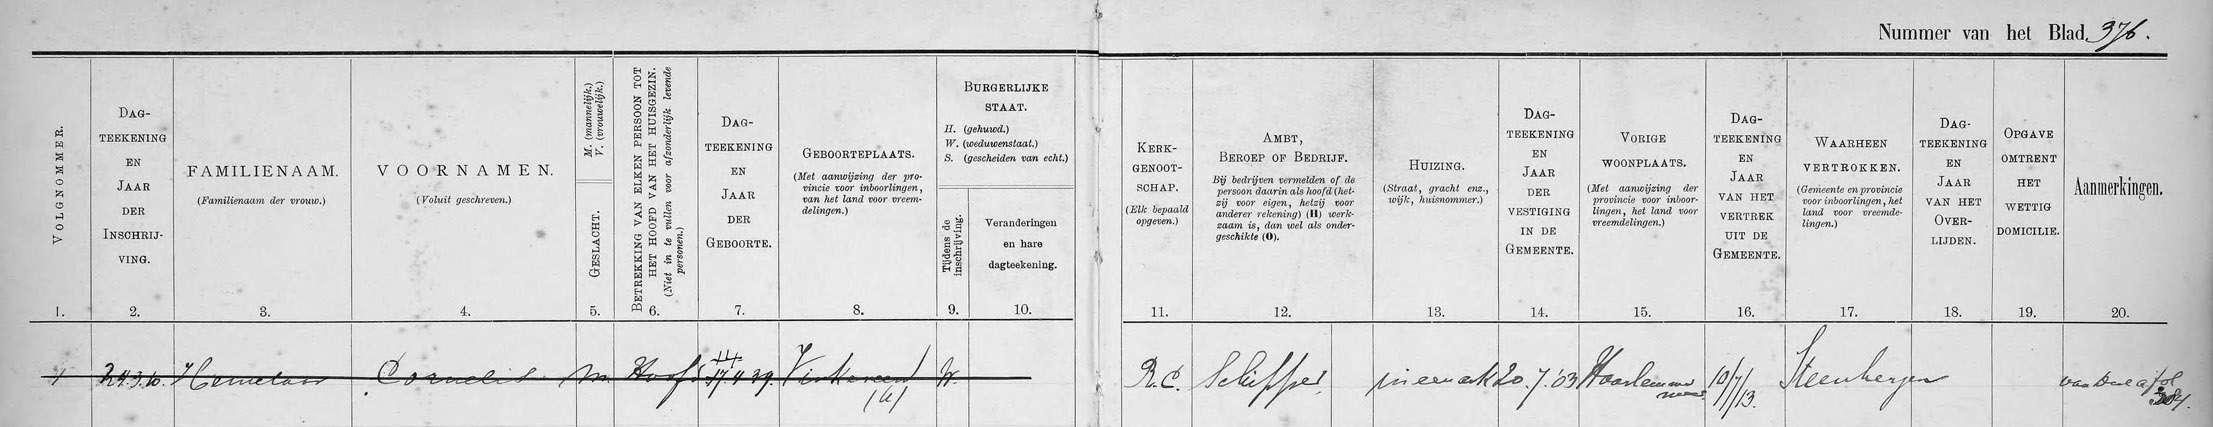 Nummer van het Blad 376.
VOLGNOMMER.
DAG-
TEEKENING
EN
JAAR
DER
INSCHRIJ-
VING.
FAMILIENAAM.
(Familienaam der vrouw.)
VOORNAMEN.
(Voluit geschreven.)
M. (mannelijk.)
V. (vrouwelijk.)
GESLACHT.
BETREKKING VAN ELKEN PERSOON TOT
HET HOOFD VAN HET HUISGEZIN.
(Niet in te vullen voor afzonderlijk levende
personen.)
DAG-
TEEKENING
EN
JAAR
DER
GEBOORTE.
GEBOORTEPLAATS.
(Met aanwijzing der pro-
vincie voor inboorlingen,
van het land voor vreem-
delingen.)
BURGERLIJKE
STAAT.
H. (gehuwd.)
W. (weduwenstaat.)
S. (gescheiden van echt.)
Tijdens de
inschrijving.
Veranderingen
en hare
dagteekening.
KERK-
GENOOT-
SCHAP.
(Elk bepaald
opgeven.)
AMBT,
BEROEP OF BEDRIJF.
Bij bedrijven vermelden of de
persoon daarin als hoofd (het-
zij voor eigen, hetzij voor
anderer rekening) (H) werk-
zaam is, dan wel als onder-
geschikte (O).
HUIZING.
(Straat, gracht enz.,
wijk, huisnommer.)
DAG-
TEEKENING
EN
JAAR
DER
VESTIGING
IN DE
GEMEENTE.
VORIGE
WOONPLAATS.
(Met aanwijzing der
provincie voor inboor-
lingen, het land voor
vreemdelingen.)
DAG-
TEEKENING
EN
JAAR
VAN HET
VERTREK
UIT DE
GEMEENTE.
WAARHEEN
VERTROKKEN.
(Gemeente en provincie
voor inboorlingen, het
land voor vreemde-
lingen.)
DAG-
TEEKENING
EN
JAAR
VAN HET
OVER-
LIJDEN.
OPGAVE
OMTRENT
HET
WETTIG
DOMICILIE.
Aanmerkingen.
1. 2. 3. 4. 5. 6. 7. 8. 9. 10. 11. 12. 13. 14. 15. 16. 17. 18. 19. 20.
1 24.3.10. Hemelaar Cornelis m. Hoofd 17.4.39. W. R.C. Schipper 20.7.'03 Haarlemmer
meer 10/7/13. Steenbergen